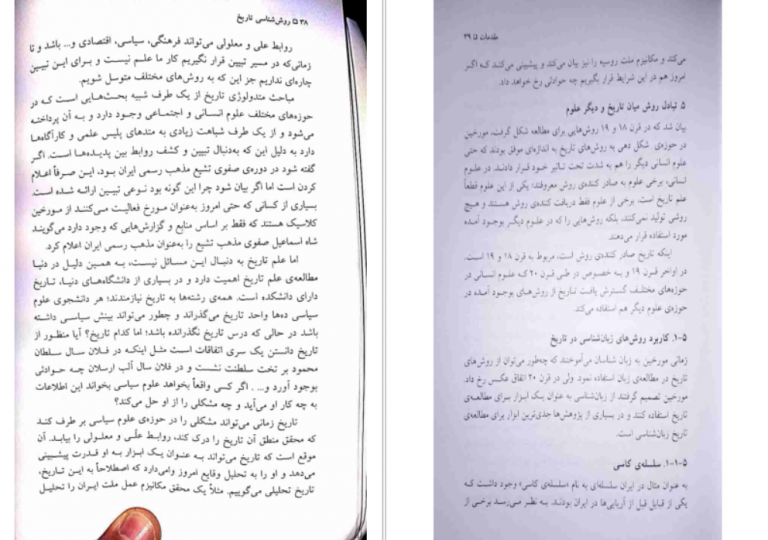 ۳۸ ۵ روش‌شناسی تاریخ
روابط علی و معلولی می‌تواند فرهنگی، سیاسی، اقتصادی و... باشد و تا
زمانی‌که در مسیر تبیین قرار نگیریم کار ما علم نیست و برای این تبیین
چاره‌ای نداریم جز این که به روش‌های مختلف متوسل شویم.
مباحث متدولوژی تاریخ از یک طرف شبیه بحث‌هایی است که در
حوزه‌های مختلف علوم انسانی و اجتماعی وجود دارد و به آن پرداخته
می‌شود و از یک طرف شباهت زیادی به متدهای پلیس علمی و کارآگاه‌ها
دارد به دلیل این که به‌دنبال تبیین و کشف روابط بین پدیده‌ها است. اگر
گفته شود در دوره‌ی صفوی تشیع مذهب رسمی ایران بود، این صرفاً اعلام
کردن است اما اگر بیان شود چرا این گونه بود نوعی تبیین ارائه شده است.
بسیاری از کسانی که حتی امروز به‌عنوان مورخ فعالیت می‌کنند از مورخین
کلاسیک هستند که فقط بر اساس منابع و گزارش‌هایی که وجود دارد می‌گویند
شاه اسماعیل صفوی مذهب تشیع را به‌عنوان مذهب رسمی ایران اعلام کرد.
اما علم تاریخ به دنبال این مسائل نیست، به همین دلیل در دنیا
مطالعه‌ی علم تاریخ اهمیت دارد و در بسیاری از دانشگاه‌های دنیا، تاریخ
دارای دانشکده است. همه‌ی رشته‌ها به تاریخ نیازمندند؛ هر دانشجوی علوم
سیاسی ده‌ها واحد تاریخ می‌گذراند و چطور می‌تواند بینش سیاسی داشته
باشد در حالی که درس تاریخ نگذرانده باشد؛ اما کدام تاریخ؟ آیا منظور از
تاریخ دانستن یک سری اتفاقات است مثل اینکه در فلان سال سلطان
محمود بر تخت سلطنت نشست و در فلان سال آلب ارسلان چه حوادثی
بوجود آورد و... . اگر کسی واقعاً بخواهد علوم سیاسی بخواند این اطلاعات
به چه کار او می‌آید و چه مشکلی را از او حل می‌کند؟
تاریخ زمانی می‌تواند مشکلی را در حوزه‌ی علوم سیاسی بر طرف کند
که محقق منطق آن تاریخ را درک کند، روابط علّی و معلولی را بیابد. آن
موقع است که تاریخ می‌تواند به عنوان یک ابزار به او قدرت پیشبینی
می‌دهد و او را به تحلیل وقایع امروز وامی‌دارد که اصطلاحاً به این تاریخ،
تاریخ تحلیلی می‌گوییم. مثلاً یک محقق مکانیزم عمل ملت ایران را تحلیل
مقدمات ۵ ۳۹
می‌کند و مکانیزم ملت روسیه را نیز بیان می‌کند و پیشبینی می‌کند که اگر
امروز هم در این شرایط قرار بگیریم چه حوادثی رخ خواهد داد.
۵. تبادل روش میان تاریخ و دیگر علوم
بیان شد که در قرن ۱۸ و ۱۹ روش‌هایی برای مطالعه شکل گرفت. مورخین
در حوزه‌ی شکل دهی به روش‌های تاریخ به اندازه‌ای موفق بودند که حتی
علوم انسانی دیگر را هم به شدت تحت تاثیر خود قرار دادند. در علوم
انسانی، برخی علوم به صادر کننده‌ی روش معروفند؛ یکی از این علوم قطعاً
علم تاریخ است. برخی از علوم فقط دریافت کننده‌ی روش هستند و هیچ
روشی تولید نمی‌کنند، بلکه روش‌هایی را که در علوم دیگر بوجود آمده
مورد استفاده قرار می‌دهند.
اینکه تاریخ صادر کننده‌ی روش است، مربوط به قرن ۱۸ و ۱۹ است.
در اواخر قرن ۱۹ و به خصوص در طی قرن ۲۰ که علوم انسانی در
حوزه‌های مختلف گسترش یافت تاریخ از روش‌های بوجود آمده در
حوزه‌ی علوم دیگر هم استفاده می‌کند.
۱-۵. کاربرد روش‌های زبان‌شناسی در تاریخ
زمانی مورخین به زبان شناسان می‌آموختند که چه‌طور می‌توان از روش‌های
تاریخ در مطالعه‌ی زبان استفاده نمود. ولی در قرن ۲۰ اتفاق عکس رخ داد.
مورخین تصمیم گرفتند از زبان‌شناسی به عنوان یک ابزار برای مطالعه‌ی
تاریخ استفاده کنند و در بسیاری از پژوهش‌ها جدی‌ترین ابزار برای مطالعه‌ی
تاریخ زبان‌شناسی است.
۱-۱-۵. سلسله‌ی کاسی
به عنوان مثال در ایران سلسله‌ای به نام «سلسله‌ی کاسی» وجود داشت که
یکی از قبایل قبل از آریایی‌ها در ایران بودند. به نظر می‌رسد برخی از